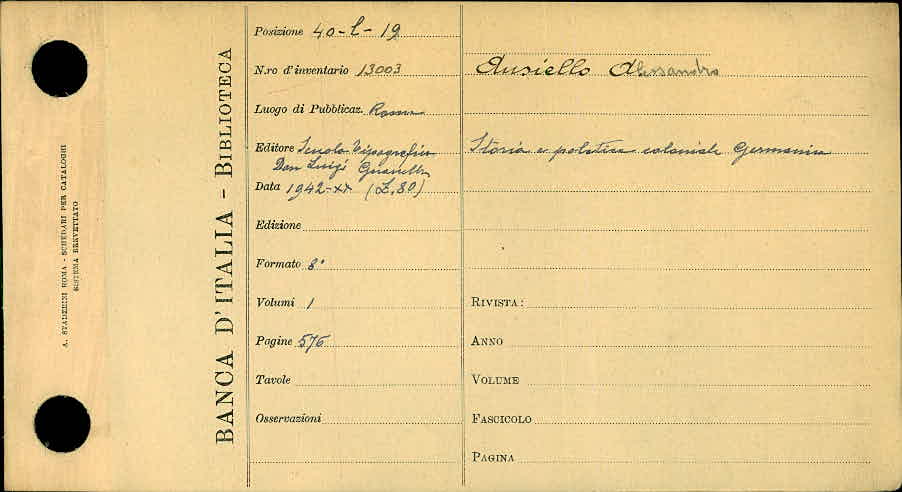 A. STADERINI ROMA - SCHEDARI PER CATALOGHI
SISTEMA BREVETTATO
BANCA D'ITALIA - BIBLIOTECA
Posizione 40-l-19
N.ro d'inventario 13003
Luogo di Pubblicaz. Roma
Editore Scuola Tipografica
Don Luigi Guanella
Data 1942-XX (L. 80)
Edizione
Formato 8°
Volumi 1
Pagine 576
Tavole
Osservazioni
Ausiello Alessandro
Storia e politica coloniale Germanica
RIVISTA:
ANNO
VOLUME
FASCICOLO
PAGINA